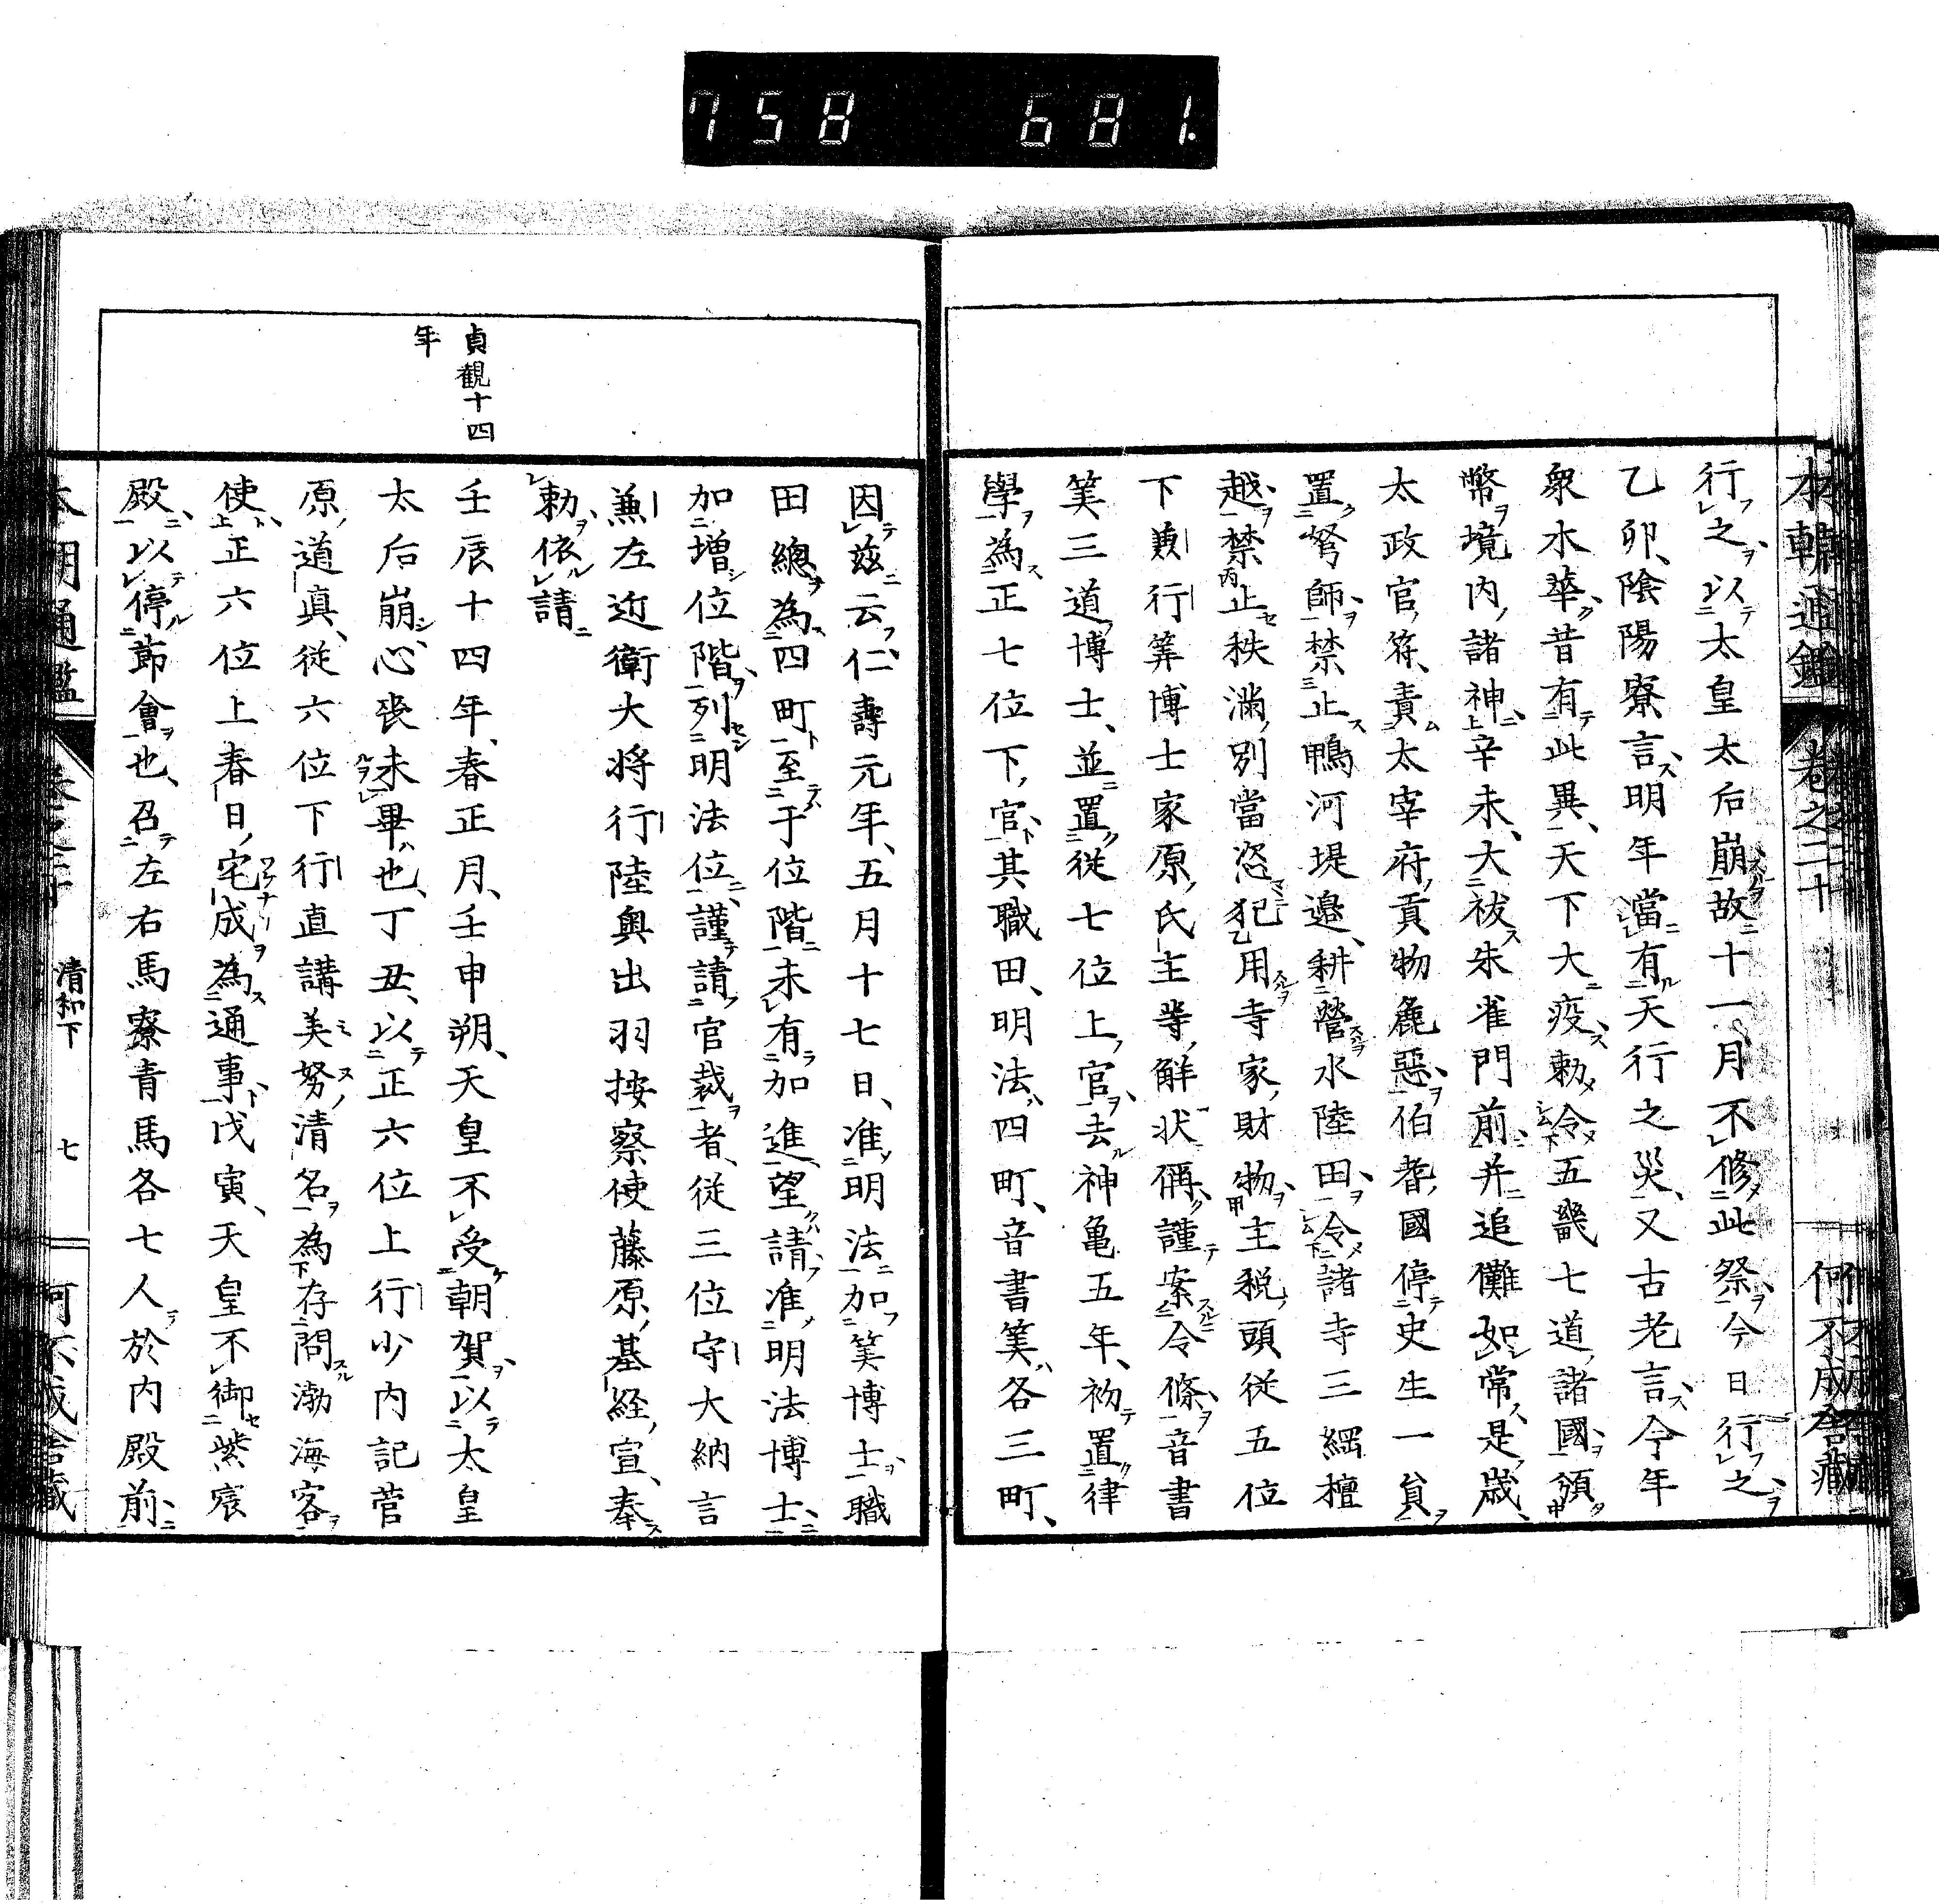 758 681.
本朝通鑑 卷之二十 何不成舎蔵
行之以太皇太后崩故十一月不修此祭今日行之
乙卯、陰陽寮言明年當有天行之災、又古老言今年
衆水華昔有此異、天下大疫勅令五畿七道諸國頒
幣境内諸神辛未、大祓朱雀門前并追儺如常是歳、
太政官符責太宰府貢物麁惡伯耆國停史生一貟
置弩師禁止鴨河堤邉耕營水陸田令諸寺三綱檀
越禁止秩滿別當恣犯用寺家財物主税頭從五位
下兼行筭博士家原氏主等解状偁謹案令條音書
筭三道博士、並置從七位上官去神亀五年、初置律
學為正七位下官其職田、明法四町、音書筭各三町、
因茲云仁壽元年、五月十七日、准明法加筭博士職
田總為四町至于位階未有加進望請准明法博士
加増位階列明法位謹請官裁者、從三位守大納言
兼左近衛大将行陸奥出羽按察使藤原基経宣、奉
勅依請
貞観十四年
壬辰十四年、春正月、壬申朔、天皇不受朝賀以太皇
太后崩心喪未畢也、丁丑、以正六位上行少内記菅
原道真從六位下行直講美努清名為存問渤海客
使正六位上春日宅成為通事戊寅、天皇不御紫宸
殿以停節會也、召左右馬寮青馬各七人於内殿前
本朝通鑑 清和下 七